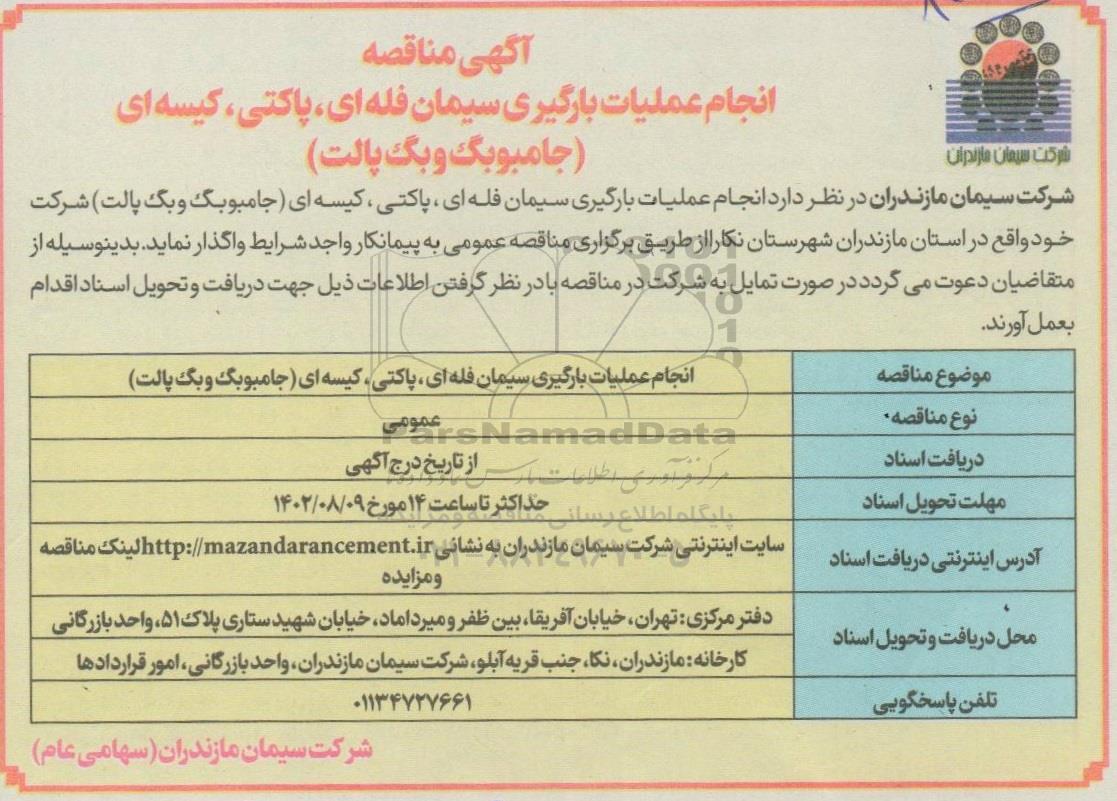 آگهی مناقصه
انجام عملیات بارگیری سیمان فله ای، پاکتی، کیسه ای
(جامبوبگ و بگ پالت)
شرکت سیمان مازندران
شرکت سیمان مازندران در نظر دارد انجام عملیات بارگیری سیمان فله ای، پاکتی، کیسه ای (جامبوبگ و بگ پالت) شرکت
خود واقع در استان مازندران شهرستان نکا را از طریق برگزاری مناقصه عمومی به پیمانکار واجد شرایط واگذار نماید. بدینوسیله از
متقاضیان دعوت می گردد در صورت تمایل به شرکت در مناقصه با در نظر گرفتن اطلاعات ذیل جهت دریافت و تحویل اسناد اقدام
بعمل آورند.
موضوع مناقصه انجام عملیات بارگیری سیمان فله ای، پاکتی، کیسه ای (جامبوبگ و بگ پالت)
نوع مناقصه عمومی
دریافت اسناد از تاریخ درج آگهی
مهلت تحویل اسناد حداکثر تا ساعت ۱۴ مورخ ۱۴۰۲/۰۸/۰۹
آدرس اینترنتی دریافت اسناد سایت اینترنتی شرکت سیمان مازندران به نشانی http://mazandarancement.ir لینک مناقصه
و مزایده
محل دریافت و تحویل اسناد دفتر مرکزی: تهران، خیابان آفریقا، بین ظفر و میرداماد، خیابان شهید ستاری پلاک ۵۱، واحد بازرگانی
کارخانه: مازندران، نکا، جنب قریه آبلو، شرکت سیمان مازندران، واحد بازرگانی، امور قراردادها
تلفن پاسخگویی ۰۱۱۳۴۷۲۷۶۶۱
شرکت سیمان مازندران (سهامی عام)
ParsNamadData
مرکز فرآوری اطلاعات پارس نماد داده ها
پایگاه اطلاع رسانی مناقصه و مزایده
۰۲۱-۸۸۳۴۹۶۷۰-۵